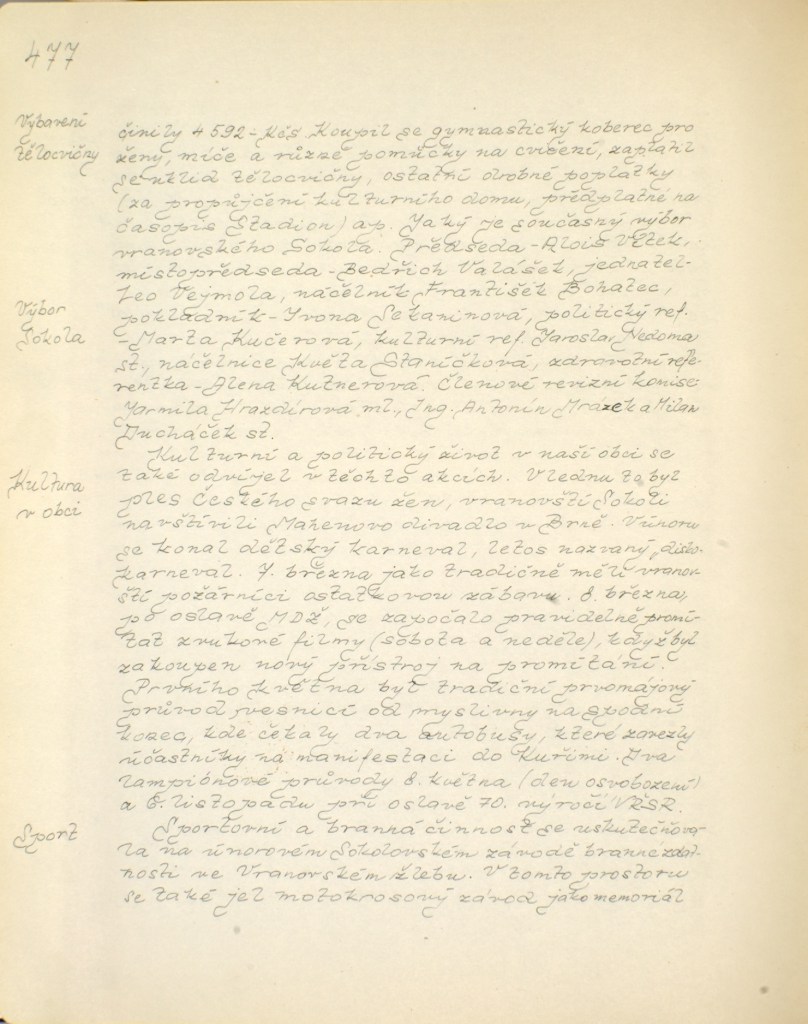 477
Vybavení
tělocvičny
činily 4 592,- Kčs. Koupil se gymnastický koberec pro
ženy, míče a různé pomůcky na cvičení, zaplatil
se úklid tělocvičny, ostatní drobné poplatky
(za propůjčení kulturního domu, předplatné na
časopis Stadion) ap. Jaký je současný výbor
vranovského Sokola. Předseda - Alois Vítek,
místopředseda - Bedřich Valášek, jednatel -
Leo Vejmola, náčelník František Bohatec,
Výbor
Sokola
pokladník - Ivona Sekaninová, politický ref.
- Marta Kučerová, kulturní ref. Jaroslav Nedoma
st., náčelnice Květa Staníčková, zdravotní refe-
rentka - Alena Kutnerová. Členové revizní komise:
Jarmila Hrazdírová ml., Ing. Antonín Mrázek a Milan
Ducháček st.
Kultura
v obci
Kulturní a politický život v naší obci se
také odvíjel v těchto akcích. V lednu to byl
ples Českého svazu žen, vranovští Sokoli
navštívili Mahenovo divadlo v Brně. V únoru
se konal dětský karneval, letos nazvaný „disko-
karneval. 7. března jako tradičně měli vranov-
ští požárníci ostatkovou zábavu. 8. března,
po oslavě MDŽ, se započalo pravidelně promí-
tat zvukové filmy (sobota a neděle), když byl
zakoupen nový přístroj na promítání.
Prvního května byl tradiční prvomájový
průvod vesnicí od myslivny na spodní
kozec, kde čekaly dva autobusy, které zavezly
účastníky na manifestaci do Kuřimi. Dva
lampiónové průvody 8. května (den osvobození)
a 6. listopadu při oslavě 70. výročí VŘSR.
Sport
Sportovní a branná činnost se uskutečňova-
la na únorovém Sokolovském závodě branné zdat-
nosti ve Vranovském žlebu. V tomto prostoru
se také jel motokrosový závod jako memoriál